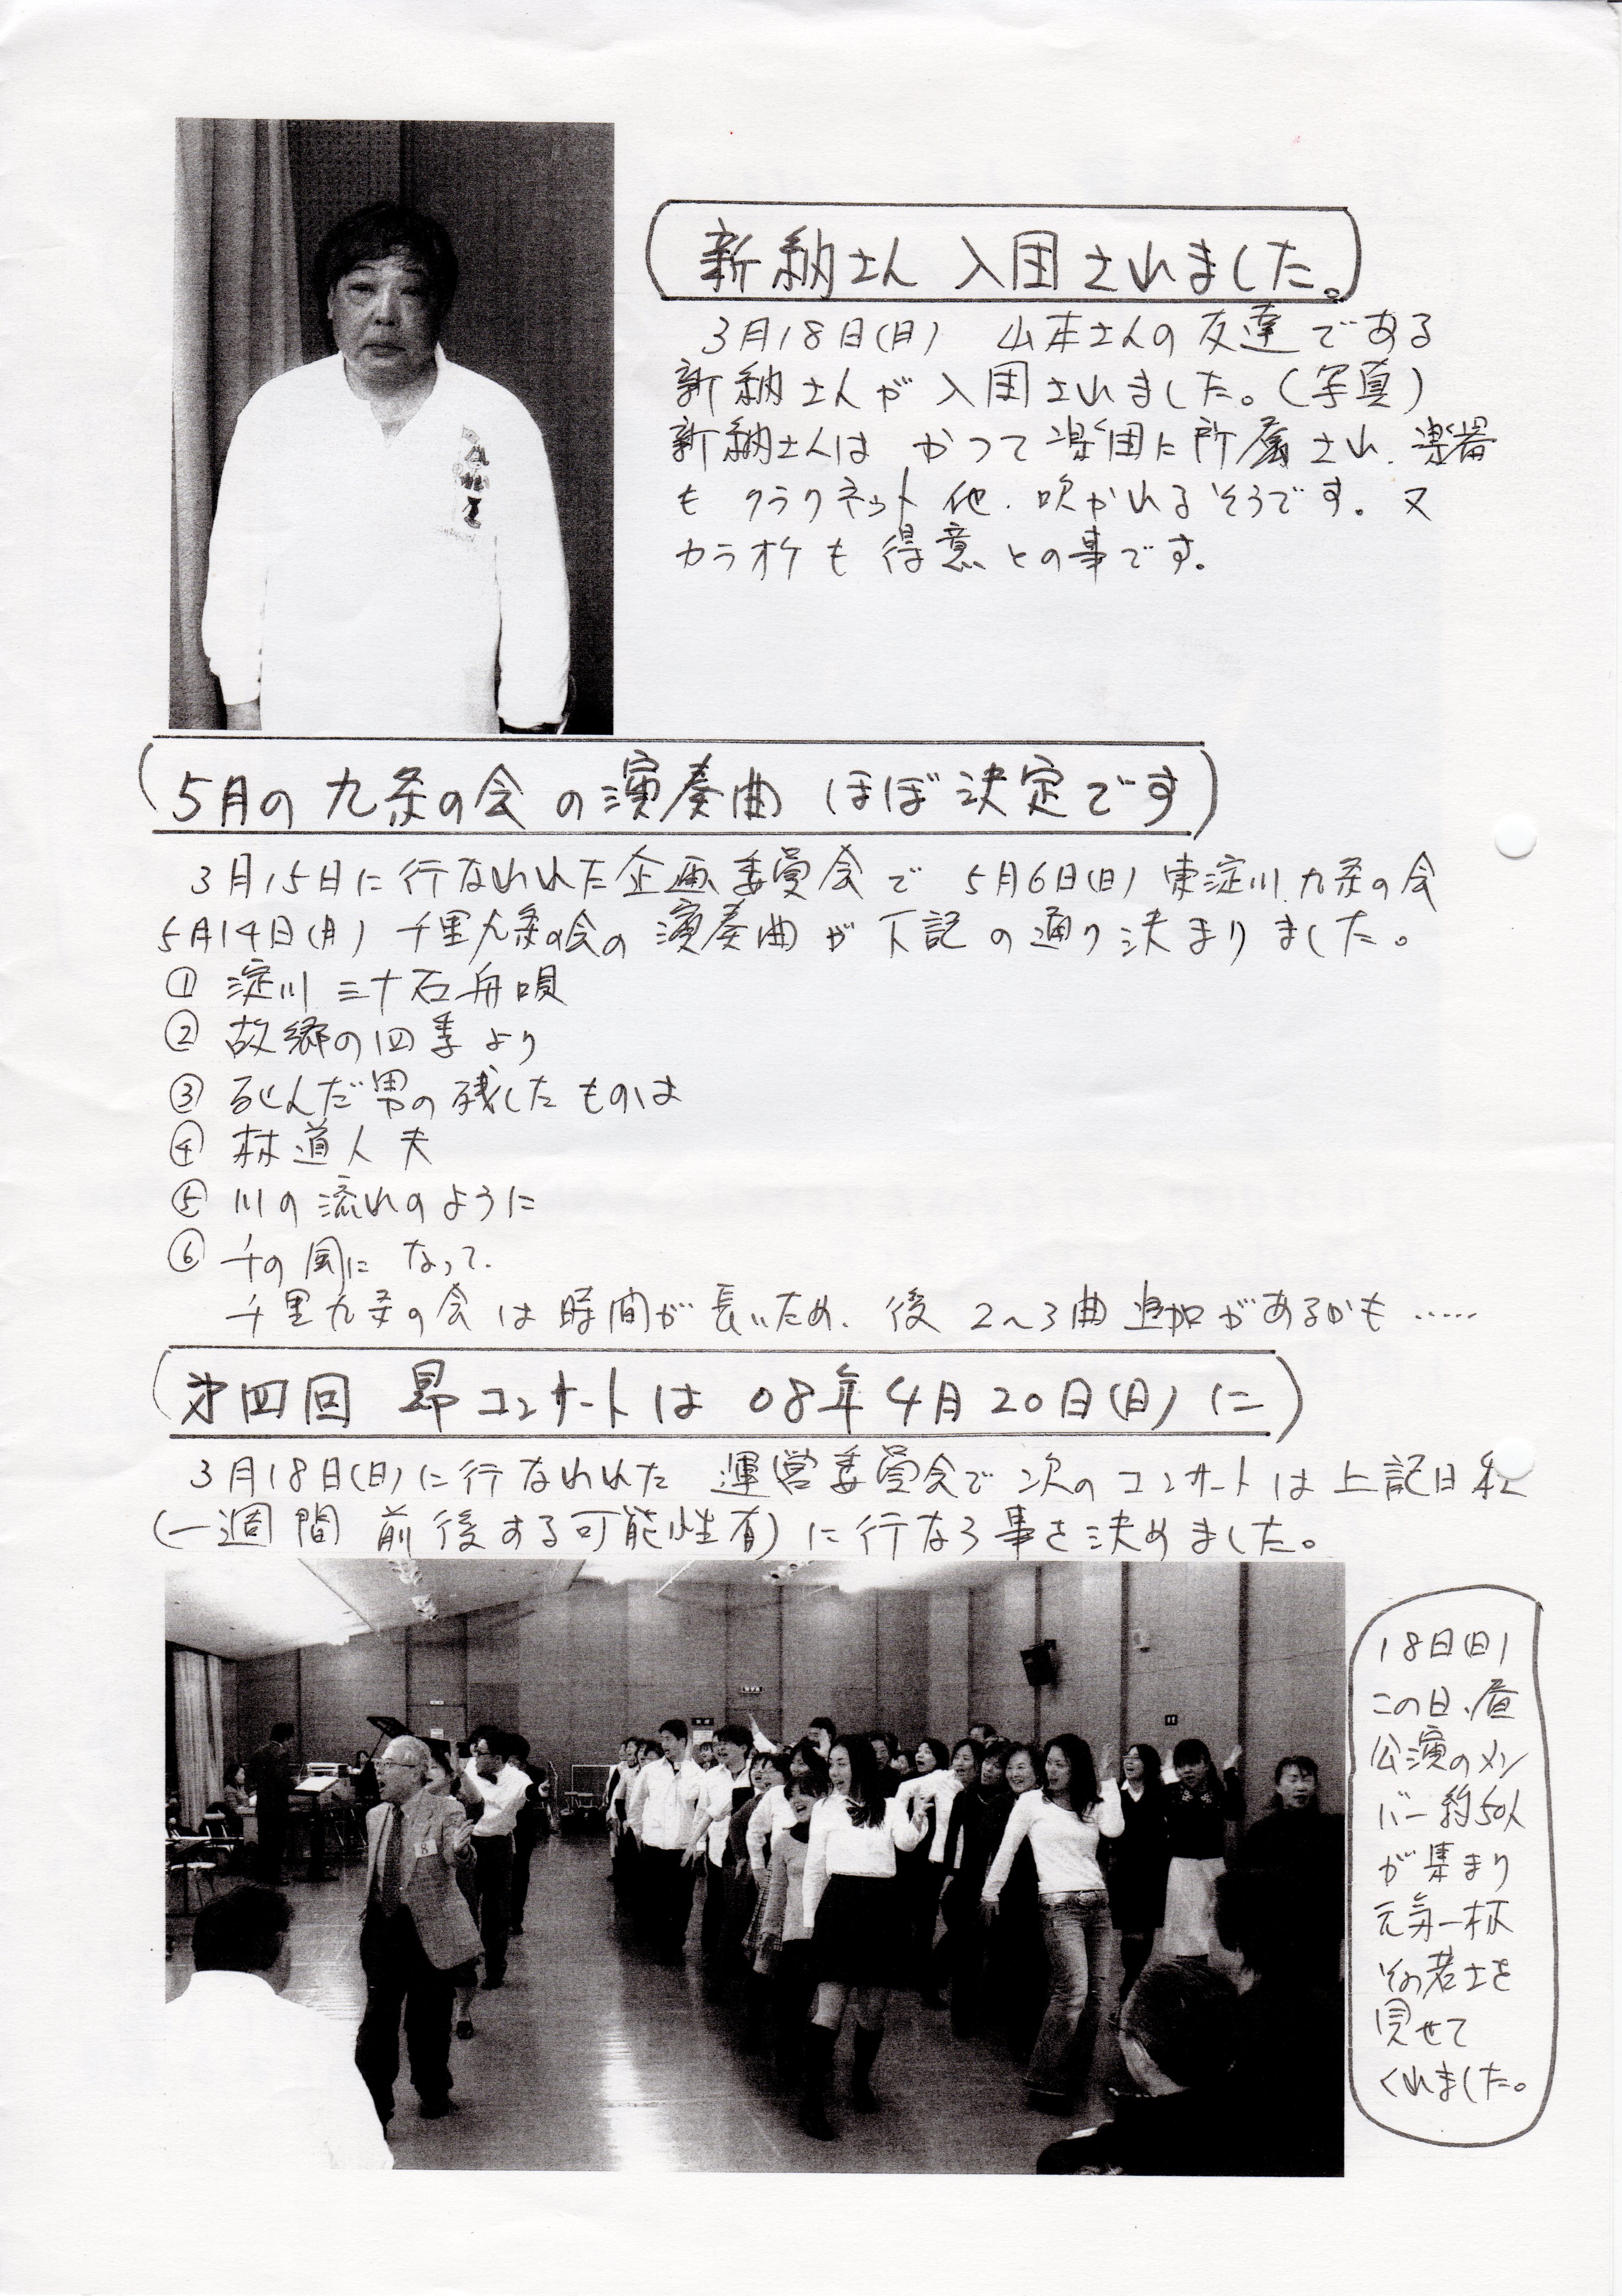 新納さん 入団されました。
3月18日(日) 山本さんの友達である
新納さんが入団されました。(写真)
新納さんは かつて楽団に所属され、楽器
も クラリネット他、吹かれるそうです。又
カラオケも 得意との事です。
5月の九条の会の演奏曲 ほぼ決定です
3月15日に行なわれた企画委員会で 5月6日(日) 東淀川九条の会
5月14日(月) 千里九条の会の演奏曲が下記の通り決まりました。
① 淀川三十石舟唄
② 故郷の四季より
③ 死んだ男の残したものは
④ 林道人夫
⑤ 川の流れのように
⑥ 千の風になって.
千里九条の会は時間が長いため、後 2〜3曲 追加があるかも……
第四回 昴コンサートは 08年4月20日(日)に
3月18日(日)に行なわれた 運営委員会で次のコンサートは上記日程
(一週間 前後する可能性有)に行なう事を決めました。
18日(日)
この日、昼
公演のメン
バー約50人
が集まり
元気一杯
その若さを
見せて
くれました。
8